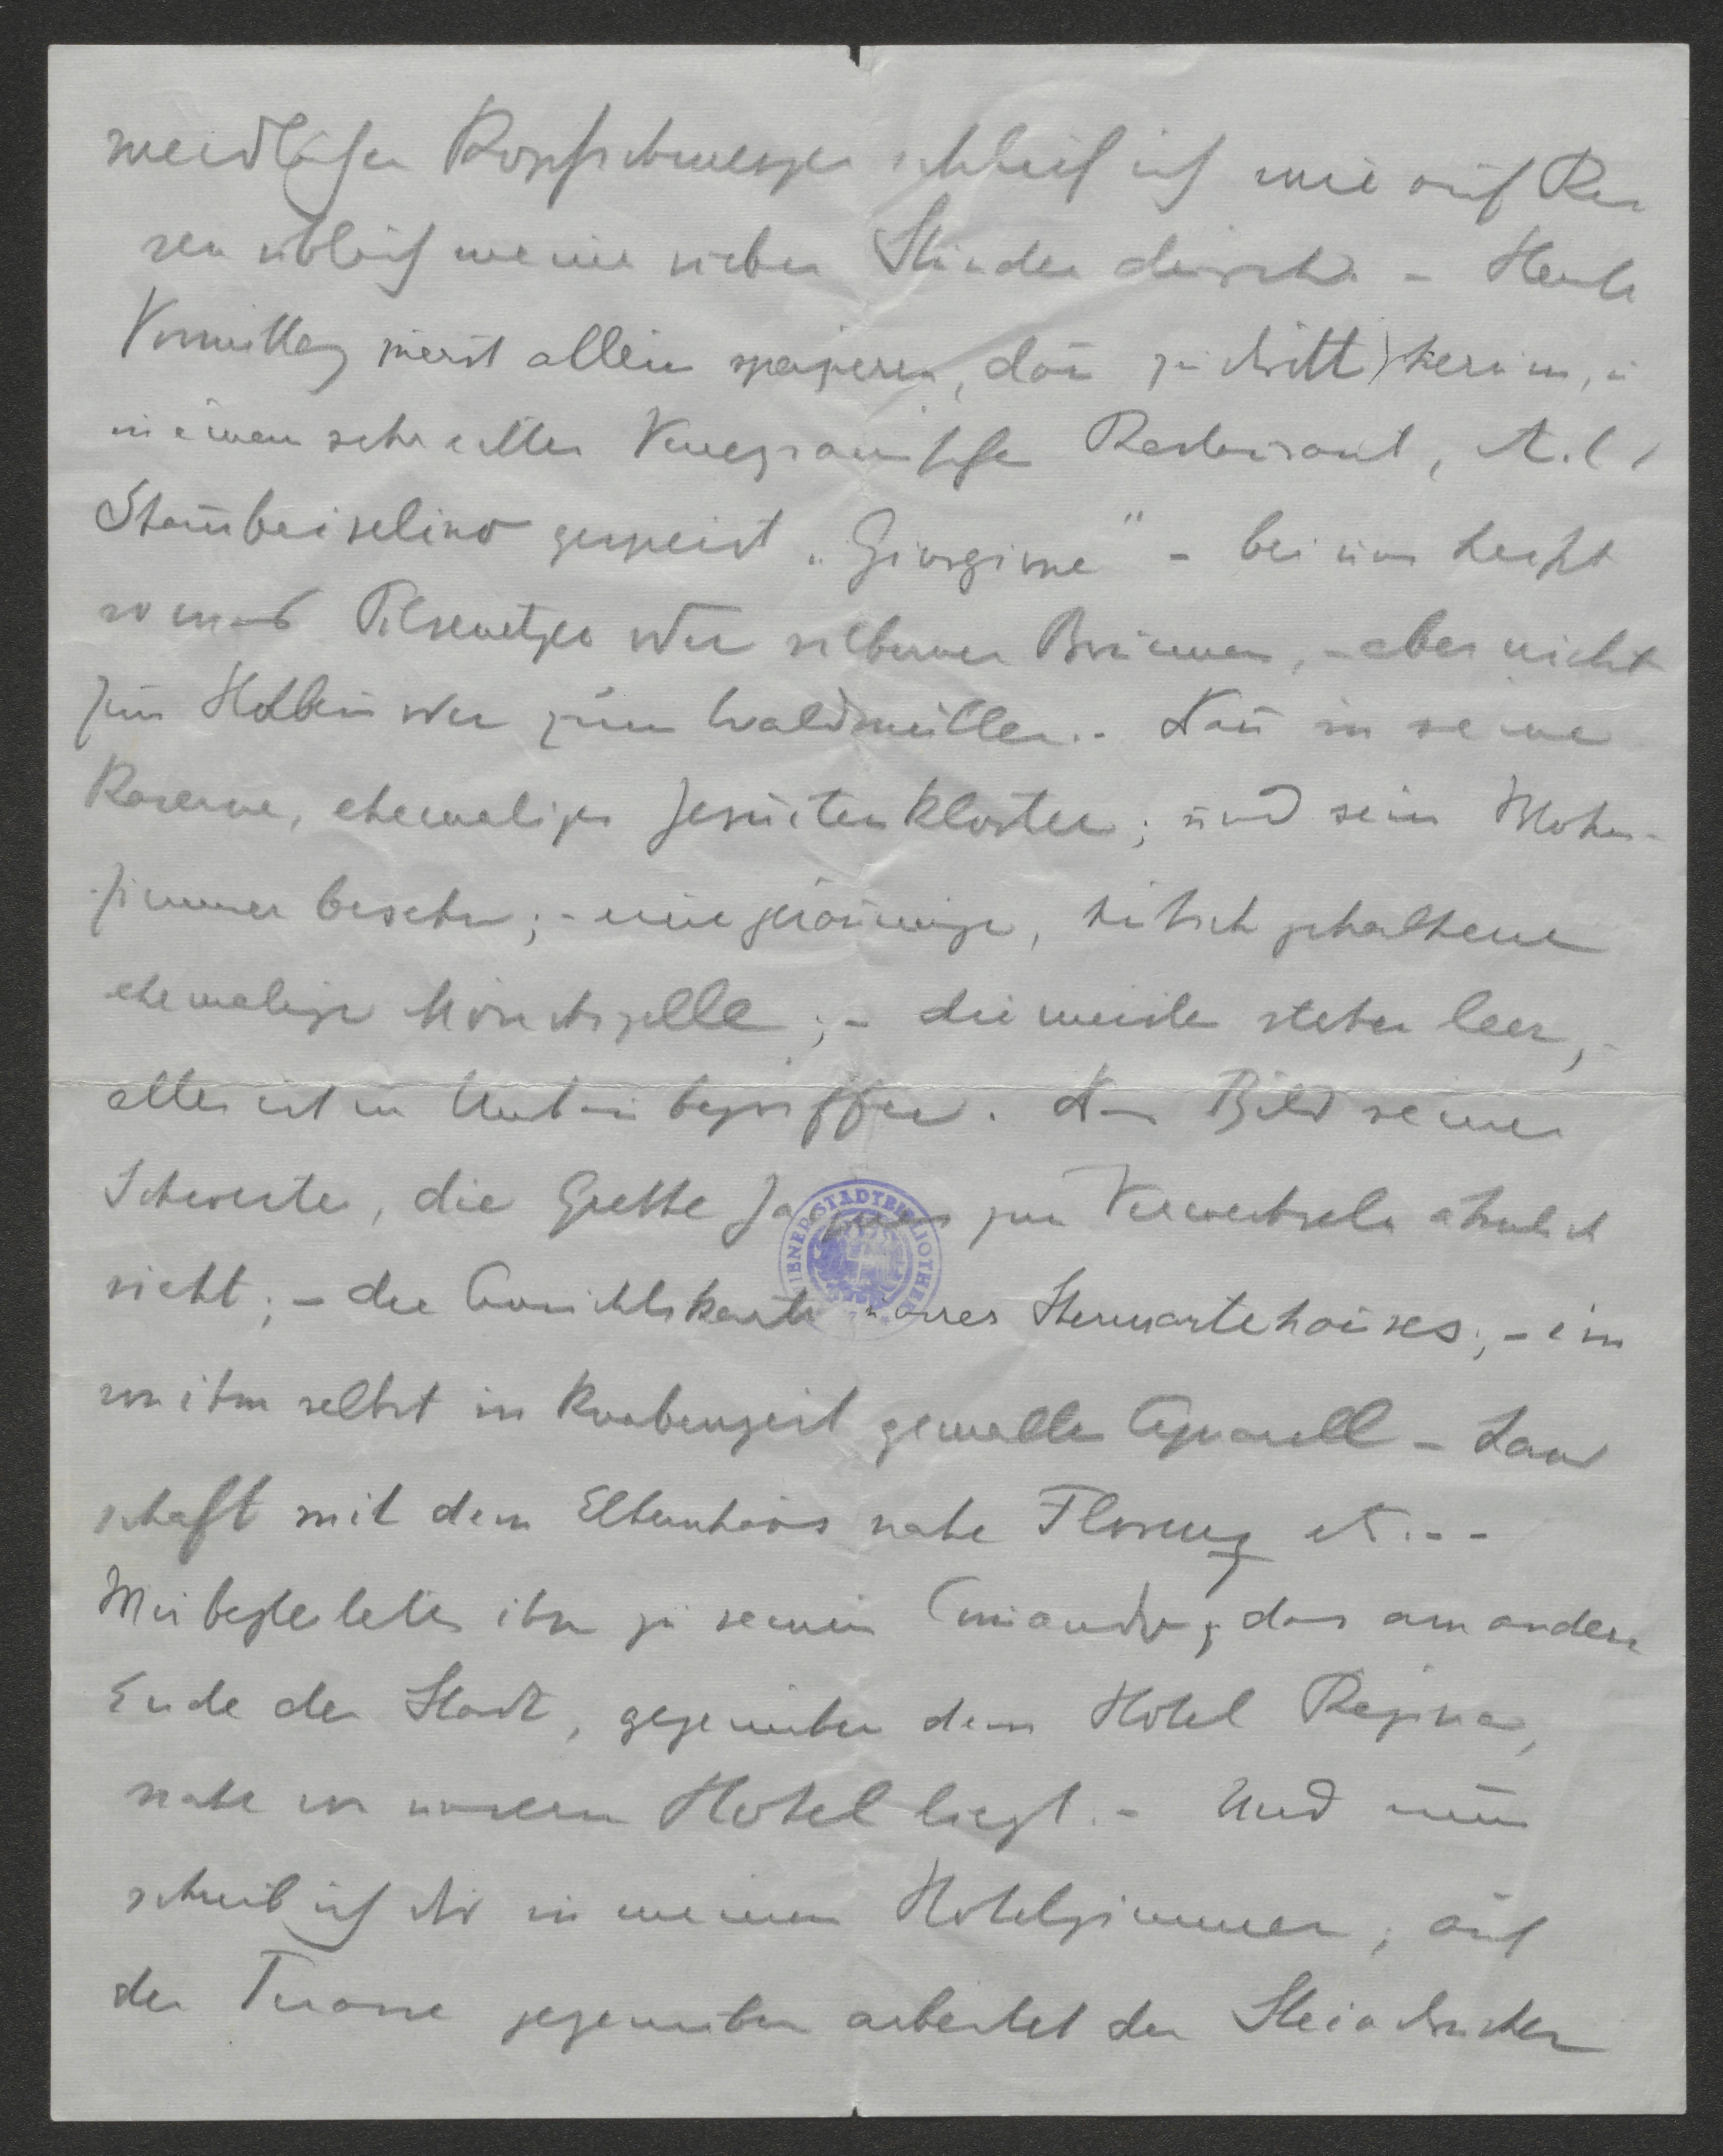 meidlicher Kopfschmerzen schlief ich wie auf Rei
sen üblich meine sieben Stunden durch. – Heute
Vormittag zuerst allein spazieren, dañ zu dritt herum, u
in einem sehr netten Venezianischen Restaurant, Art
Stam̄beiselino gespeist „Giorgione" – bei uns heisst
so was Pilsenetzer oder silberner Brunnen, – aber nicht
zum Holbein oder zum Waldmüller. – Dañ in seine
Kaserne, ehemaliges Jesuitenkloster; und sein Wohn-
zimmer besehn; – eine geräumige, hübsch gehaltene
ehemalige Mönchszelle; – die meisten stehen leer, –
alles ist im Umbau begriffen. Das Bild seiner
Schwester, die Grethe zum Verwechseln ähnlich
sieht; – die Ansichtskarte unsres Sternwartehauses; – ein
von ihm selbst in Knabenzeit gemaltes Aquarell – Land
schaft mit dem Elternhaus nahe Florenz etc. –
Wir begleiteten ihn zu seinem Com̄ando, das am andern
Ende der Stadt, gegenüber dem Hotel Regina,
nahe von unserm Hotel liegt. – Und nun
schreib ich dir in meinem Hotelzimmer; auf
der Terasse gegenüber arbeitet der Steindrucker
STADTBIBLIOTHEK